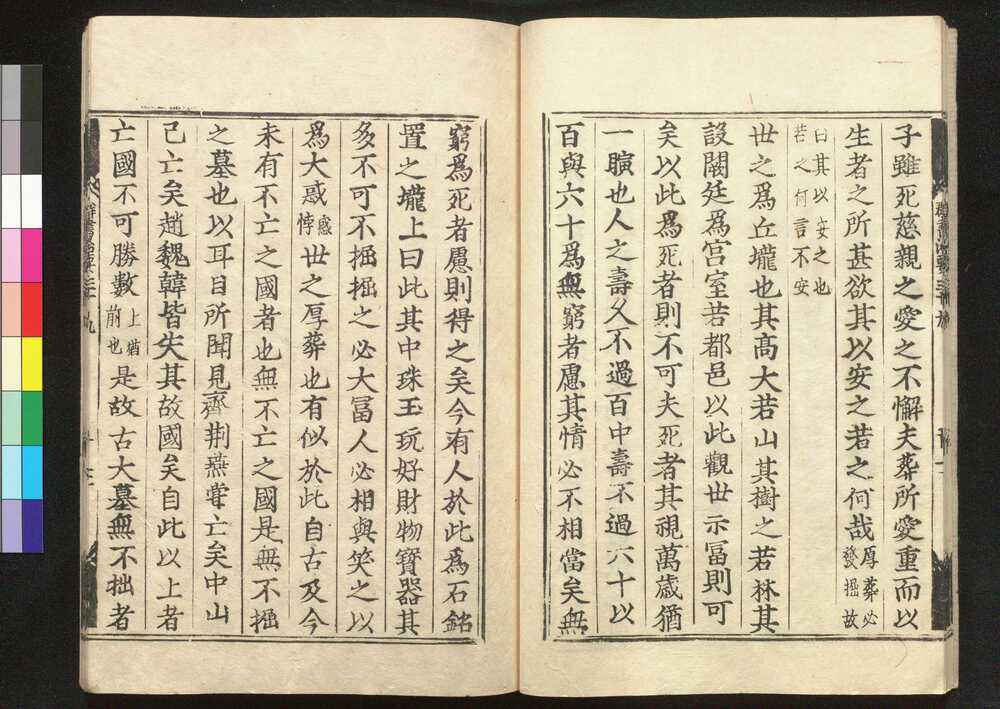 子雖死慈親之愛之不懈夫葬所愛重而以
生者之所甚欲其以安之若之何哉厚葬必發掘故
曰其以安之也若之何言不安
世之爲丘壠也其高大若山其樹之若林其
設闕廷爲宫室若都邑以此觀世示冨則可
矣以此爲死者則不可夫死者其視萬歳猶
一瞚也人之壽久不過百中壽不過六十以
百與六十爲無窮者慮其情必不相當矣無
窮爲死者慮則得之矣今有人於此爲石銘
置之壠上曰此其中珠玉玩好財物寳器甚
多不可不掘掘之必大冨人必相與笑之以
爲大惑惑悖世之厚葬也有似於此自古及今
未有不亡之國者也無不亡之國是無不掘
之墓也以耳目所聞見齊荆燕甞亡矣中山
已亡矣趙魏韓皆失其故國矣自此以上者
亡國不可勝數上猶前也是故古大墓無不拙者